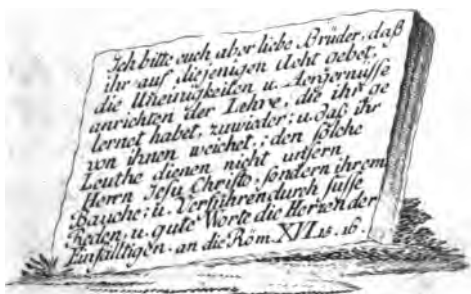 Ich bitte euch aber liebe Brüder, daß
ihr auf diejenigen Acht gebet,
die Uneinigkeiten u. Aergernusse
anrichten der Lehre, die ihr ge
lernet habet, zuwieder; u. daß ihr
von ihnen weichet,; den solche
Leuthe dienen nicht unsern
Herrn Jesu Christo, sondern ihrem
Bauche; u. Verführen durch susse
Reden, u. gute Worte die Hertzen der
Einfältigen. an die Röm. XVI. 15. 16.